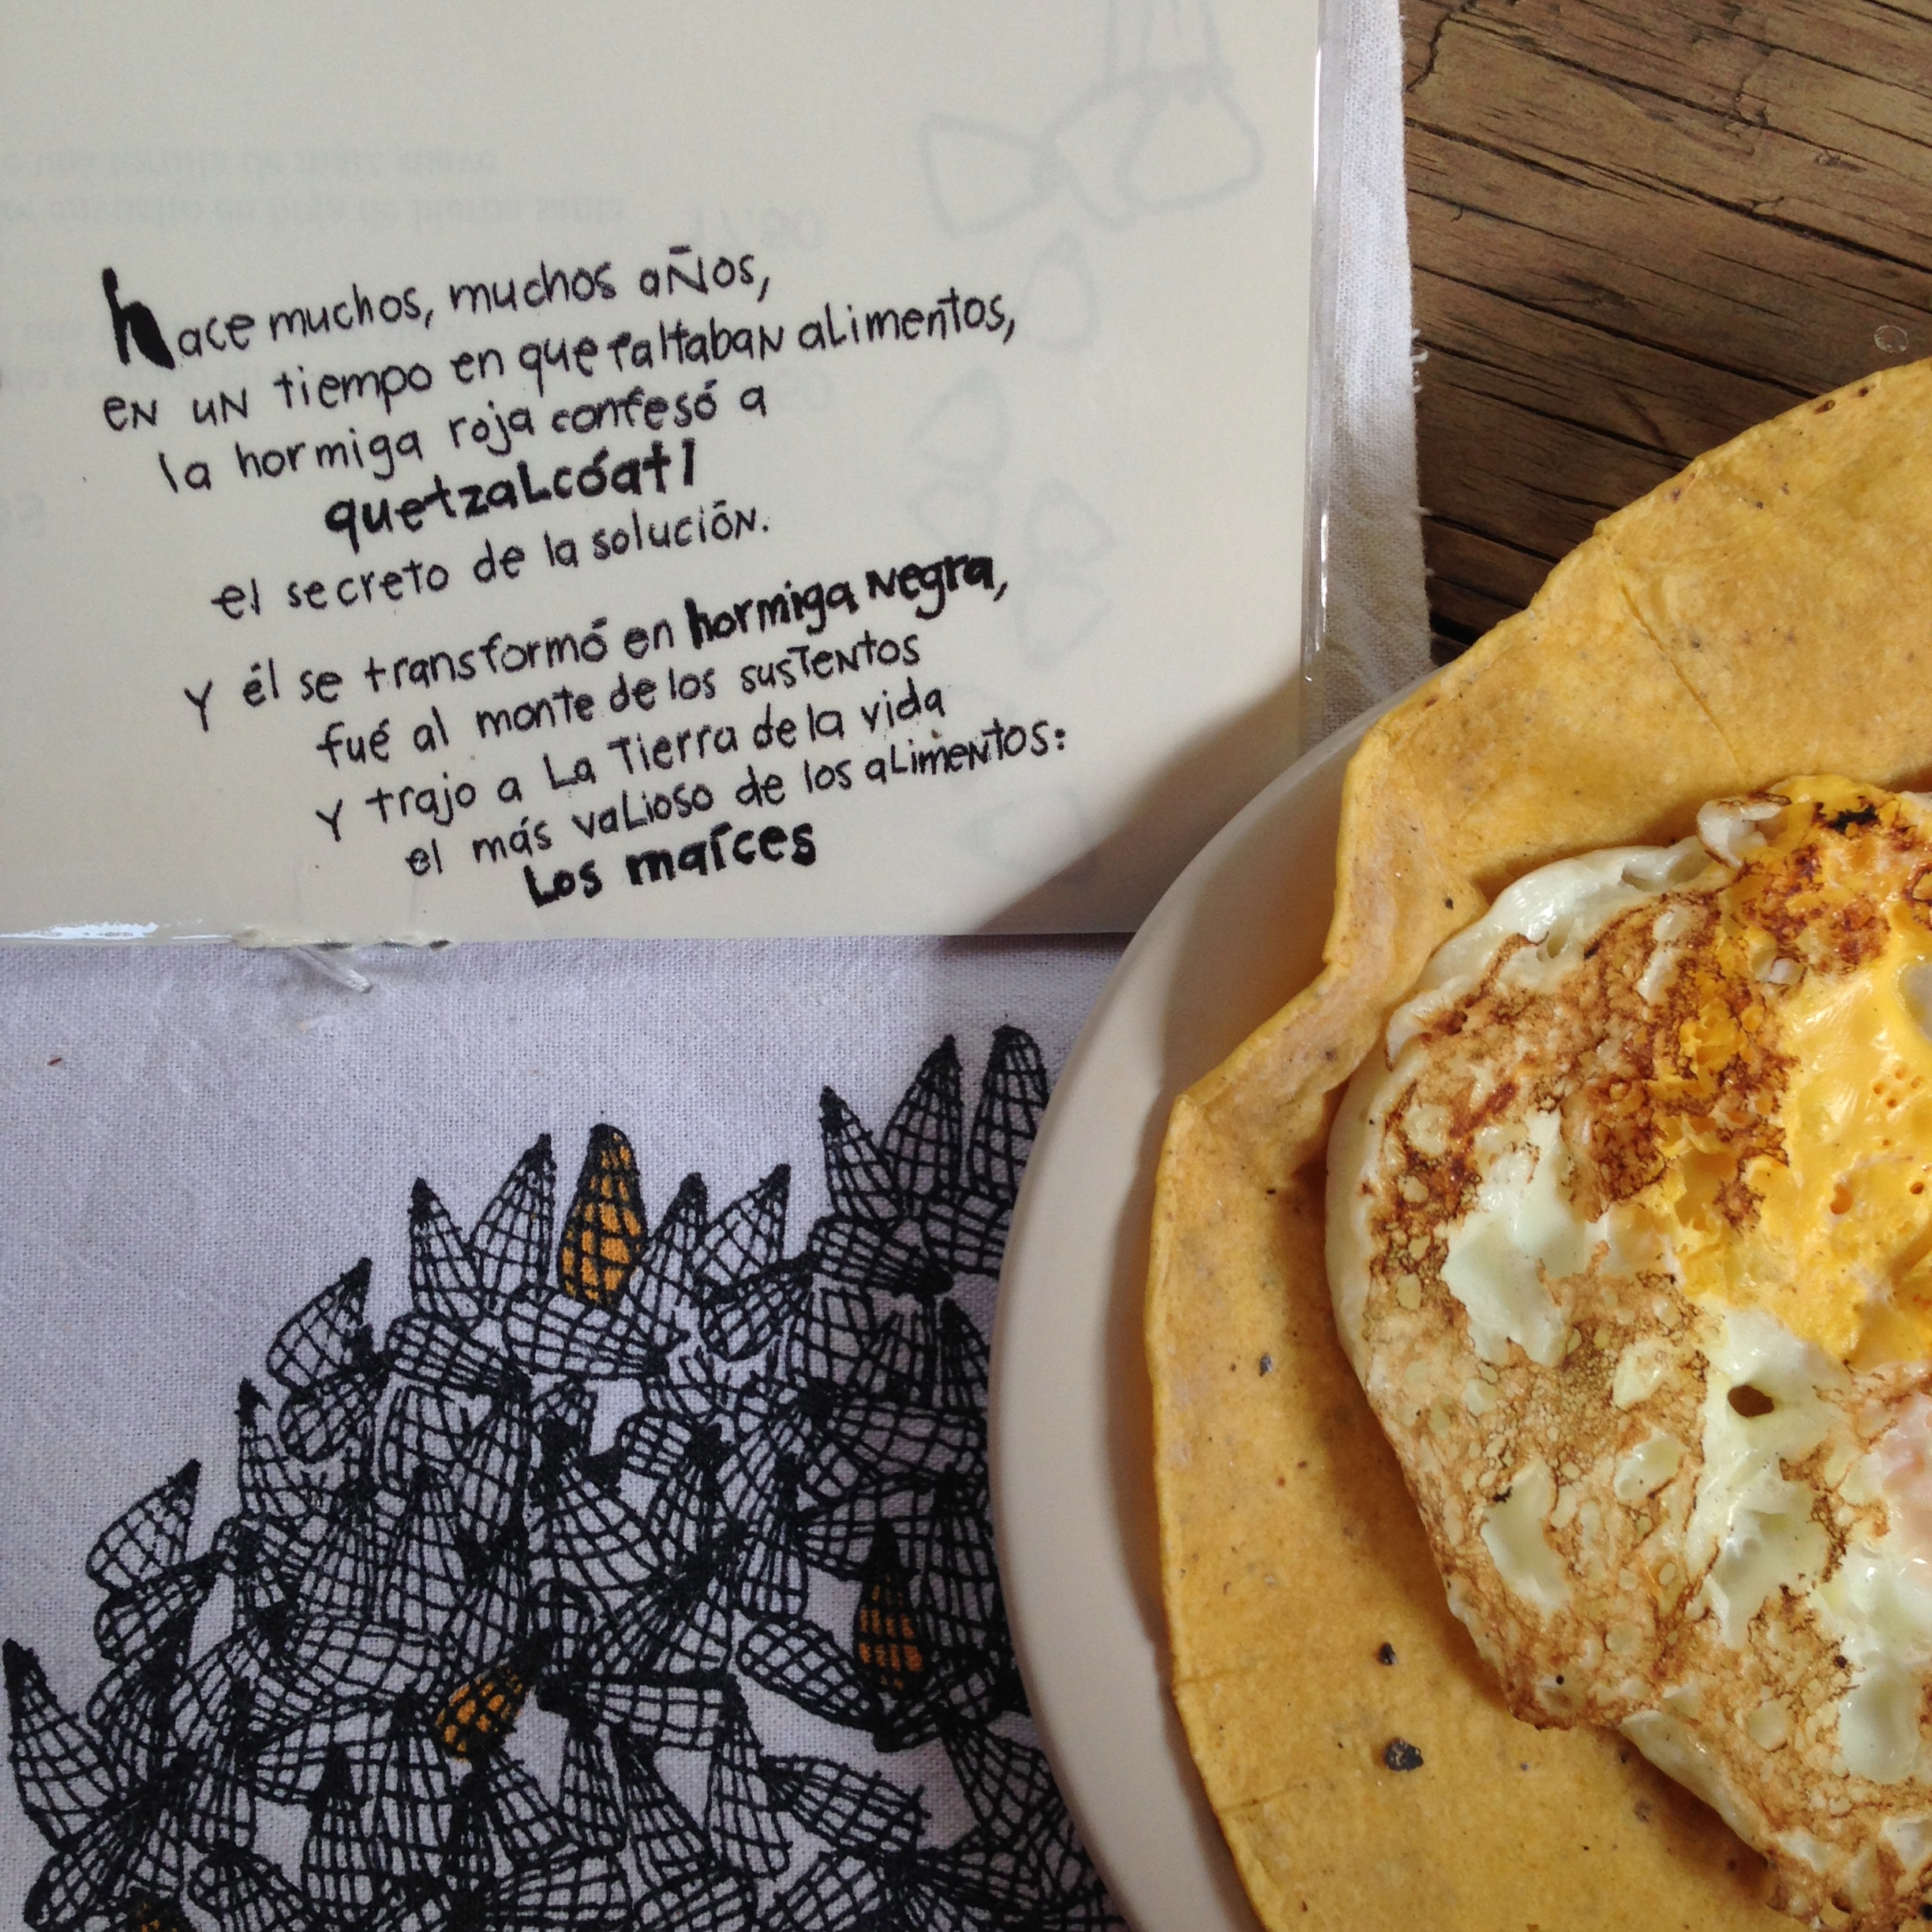 hace muchos, muchos años,
en un tiempo en que faltaban alimentos,
la hormiga roja confesó a
quetzalcóatl
el secreto de la solución.
y él se transformó en hormiga negra,
fué al monte de los sustentos
y trajo a la tierra de la vida
el más valioso de los alimentos:
los maíces